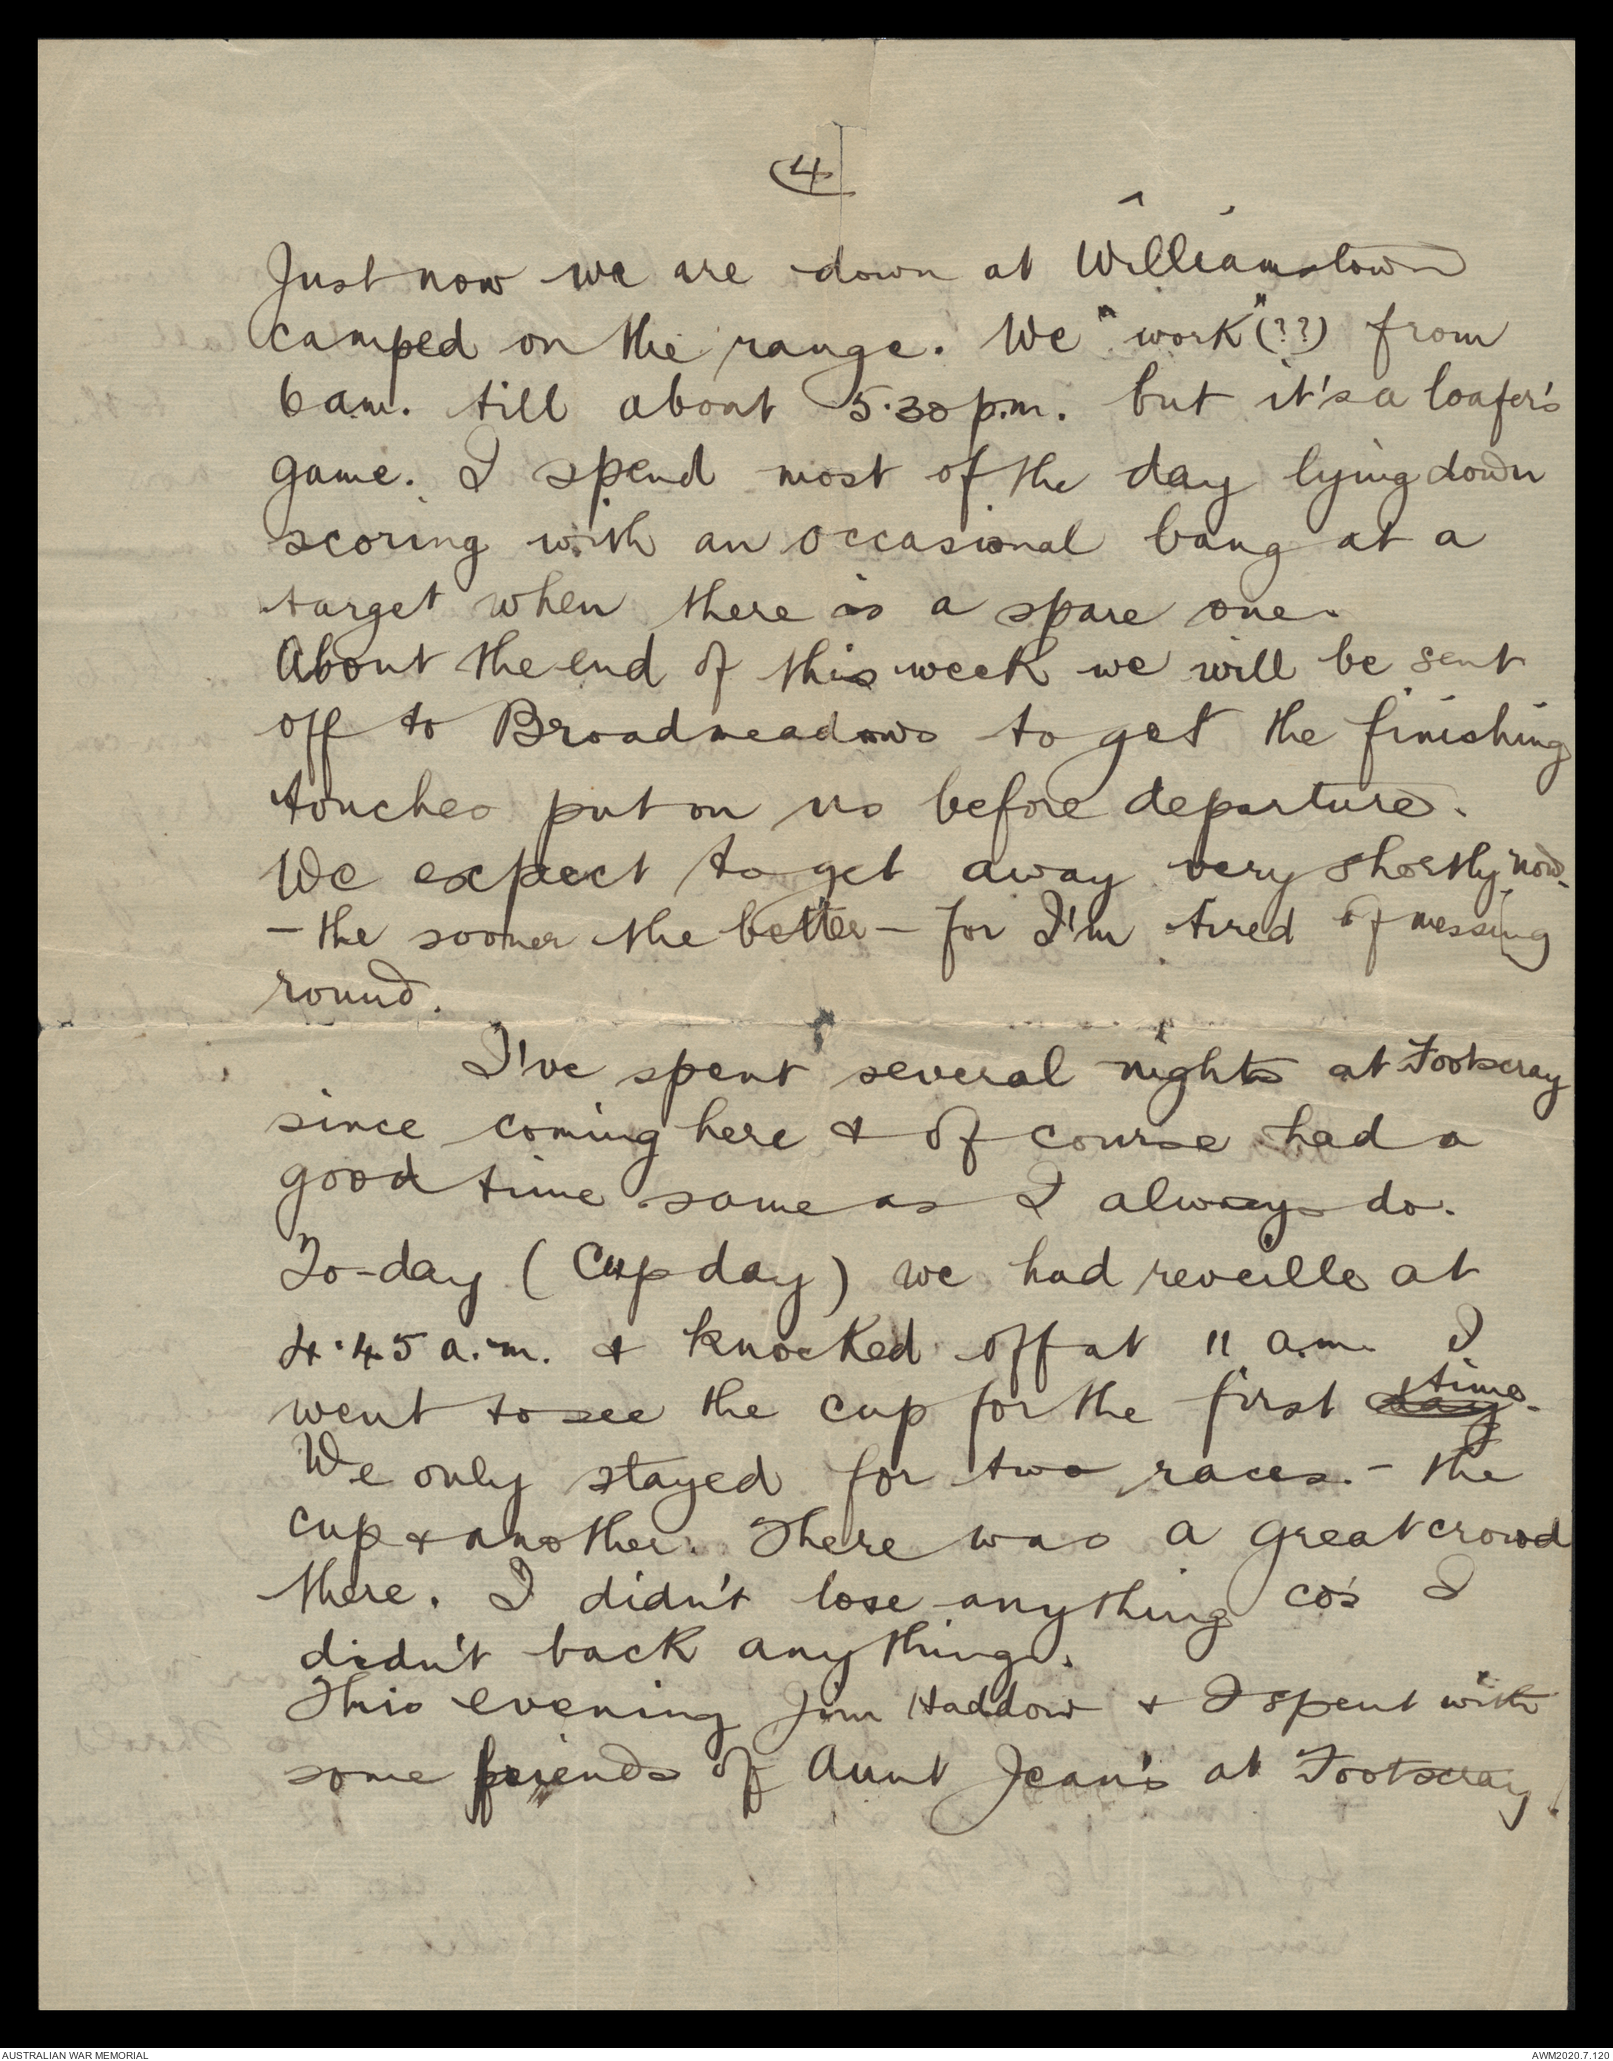 4
Just now we are down at Williamstown
camped on the range. We "work" (??) from
6 am. till about 5.30 p.m. but it's a loafer's
game. I spend most of the day lying down
scoring with an occasional bang at a
target when there is a spare one.
About the end of this week we will be sent
off to Broadmeadows to get the finishing
touches put on us before departure.
We expect to get away very shortly now.
- the sooner the better - for I'm tired of messing
round.
I've spent several nights at Footscray
since coming here & of course had a
good time same as I always do.
To-day (Cup day) we had reveille at
4.45 a.m. & knocked off at 11 a.m. I
went to see the cup for the first day time.
We only stayed for two races. - the
cup & another. There was a great crowd
there. I didn't lose anything cos I
didn't back anything.
This evening Jim Haddow & I spent with
some friends of Aunt Jean's at Footscray.
AUSTRALIAN WAR MEMORIAL AWM2020.7.120